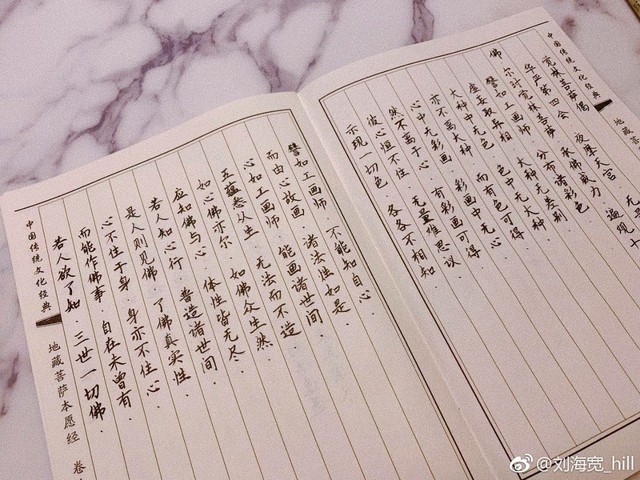 中国传统文化经典 地藏
觉林菩萨偈
华严第四会 夜摩天宫 无
尔时觉林菩萨 承佛威力 遍观十
佛
譬如工画师 分布诸彩色
虚妄取异相 大种无差别
大种中无色 色中无大种
亦不离大种 而有色可得
心中无彩画 彩画中无心
然不离于心 有彩画可得
彼心恒不住 无量难思议
示现一切色 各各不相知
譬如工画师 不能知自心.
而由心故画 诸法性如是.
心如工画师 能画诸世间.
五蕴悉从生 无法而不造
如心佛亦尔. 如佛众生然.
应知佛与心 体性皆无尽.
若人知心行 普造诸世间.
是人则见佛 了佛真实性.
心不住于身 身亦不住心.
而能作佛事. 自在未曾有.
若人欲了知. 三世一切佛.
中国传统文化经典 地藏菩萨本愿经 卷
@刘海宽_hill